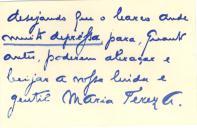 desejando que o leares ande
muito depressa, para, quanto
antes, poderem abraçar e
beijar a nossa linda e
gentil Maria Tereza.